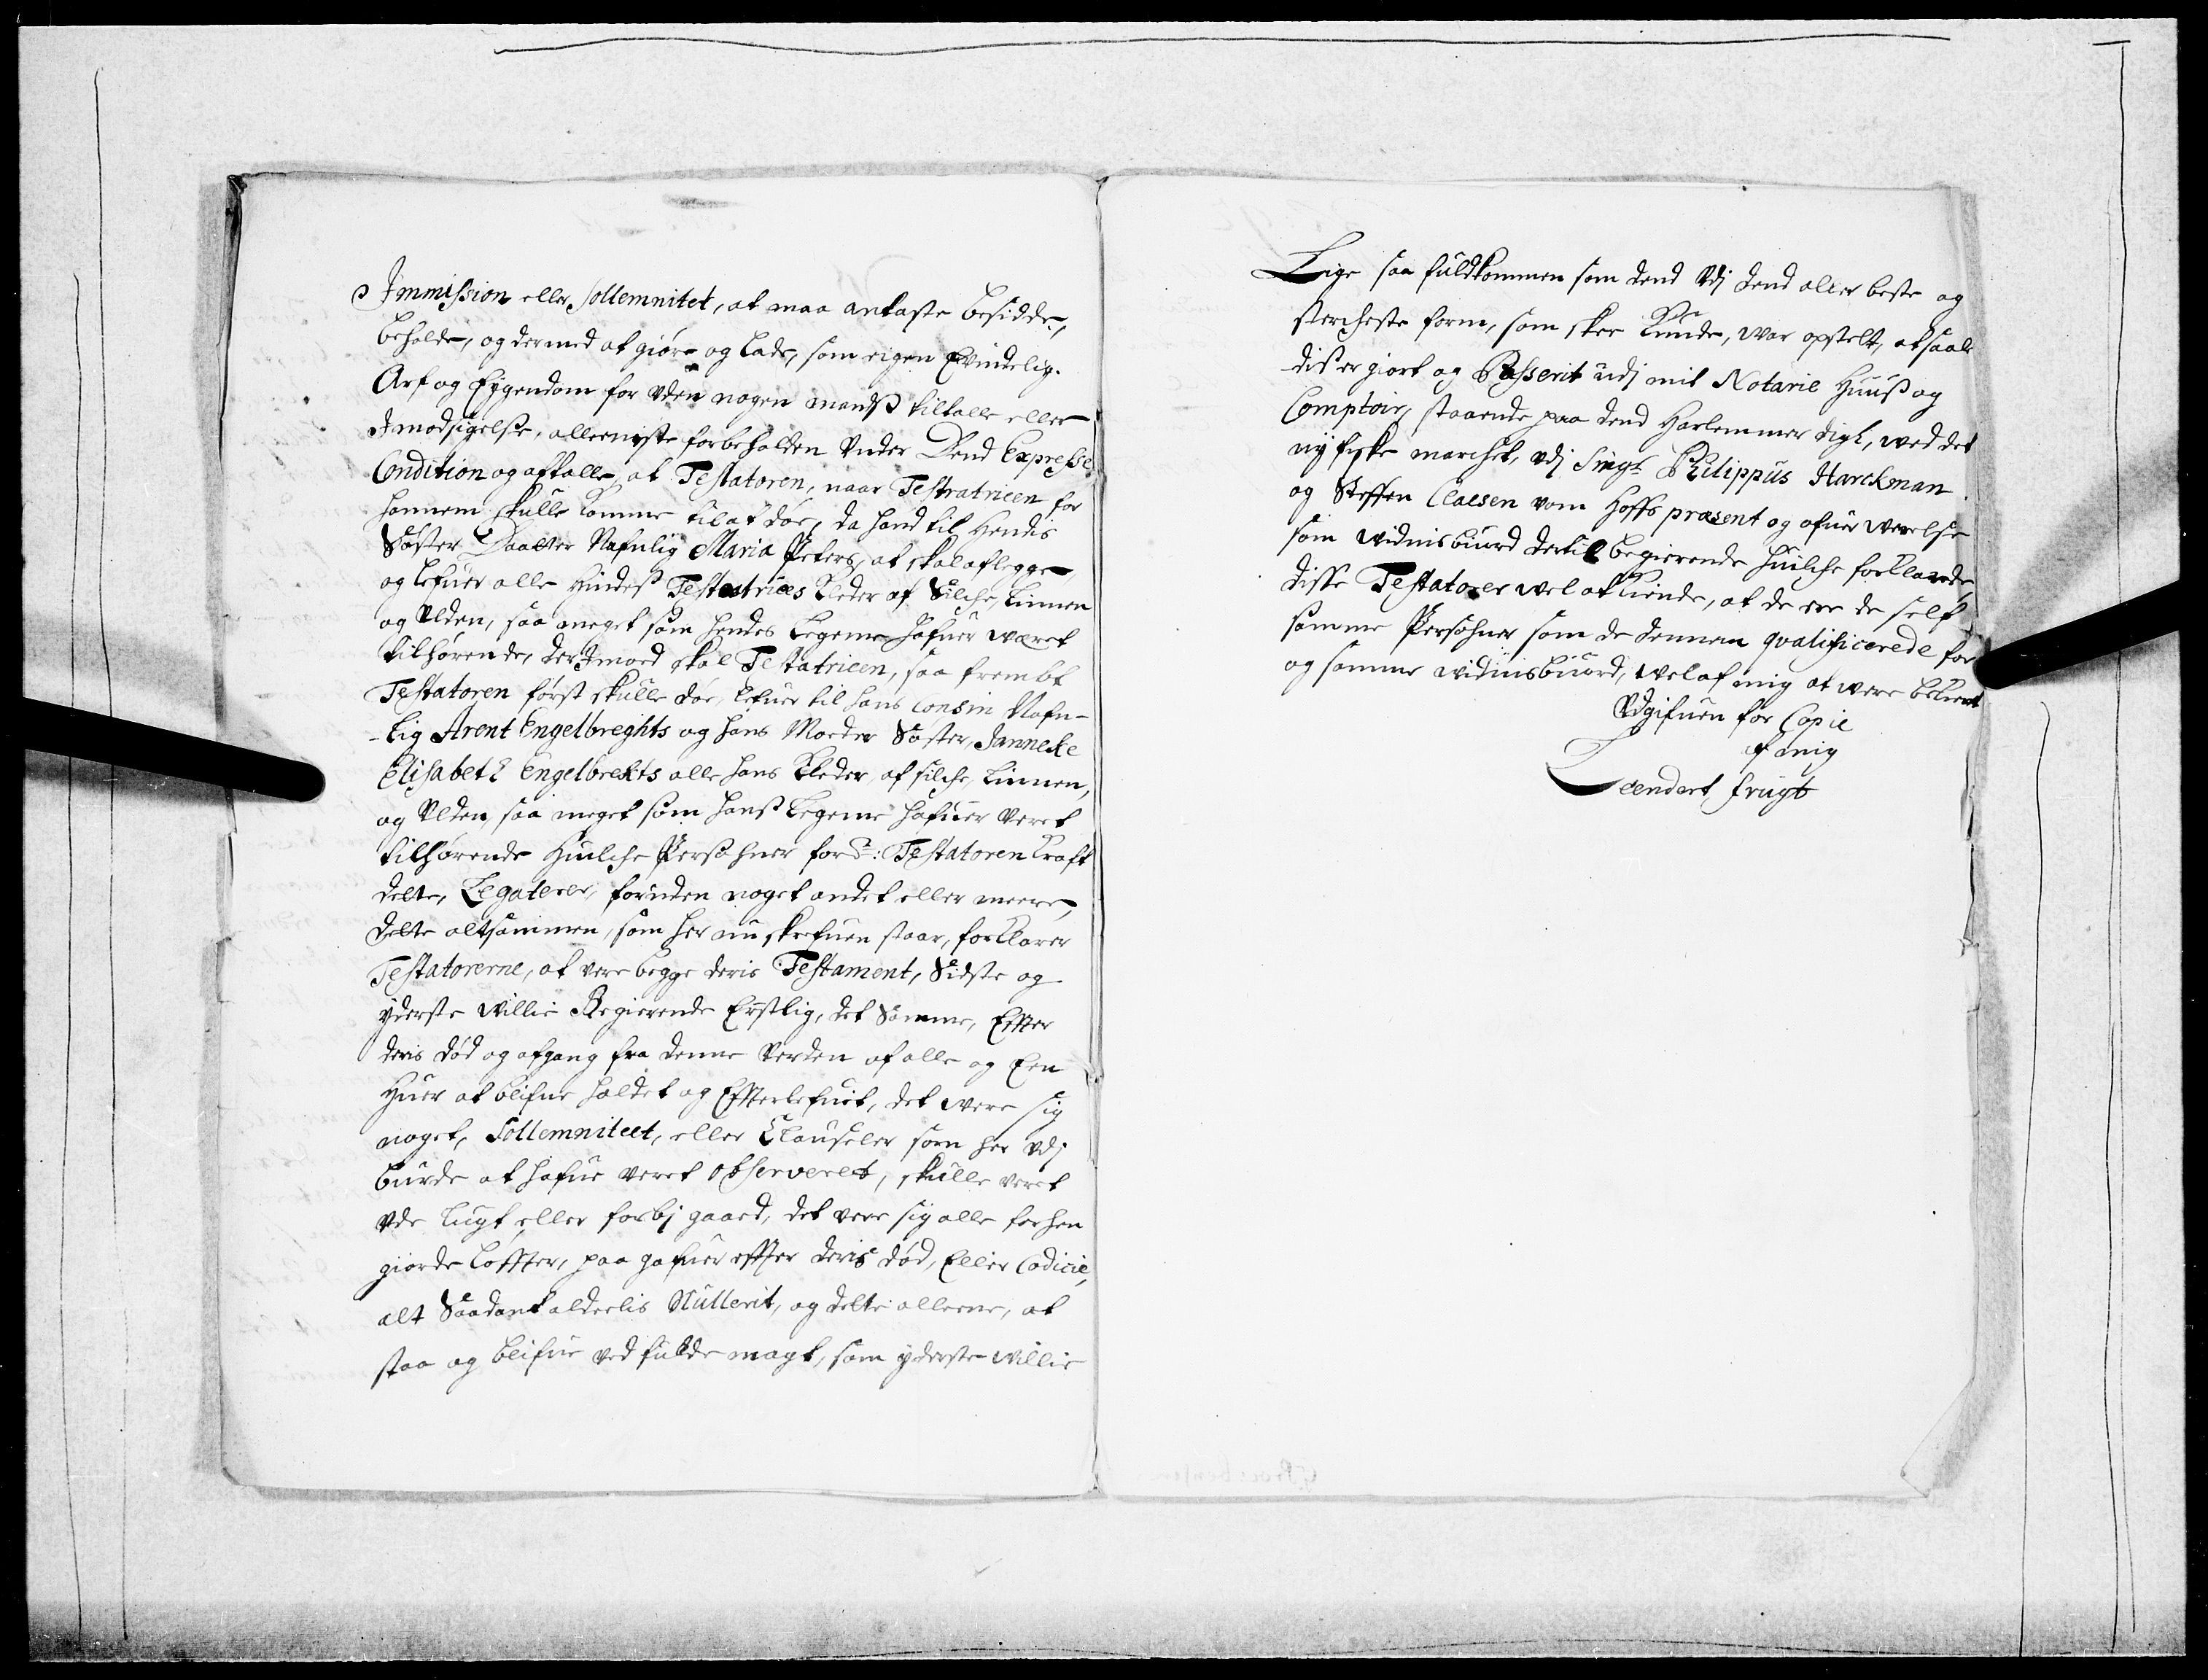 Immission eller Sollemnitet, at maa antaste besidde,
beholde, og dermed at giøre og lade, som eigen Evindelig.
Arf og Eygendom for uden nogen mands tiltalle eller
Imodsigelse, allerniste forbeholden Under Dend Expresse
Condition og aftalle, at Testatoren, naar Testratricen for
hannem skulle komme til at døe, da hand til Hendis
Søster Daatter Nafnlig Maria Peters, at skal aflegge
og lefuer alle hindes Testatrices Kleder af Silche, Linnen
og Ulden, saa meget som hendes Legeme hafuer weret
tilhørende, der Imoed skal Testatricen, saa frembt
Testatoren først skulle døe, lefuer til hans Consin Nafn-
-lig Arent Engelbreghts og hans Moeder Søster, Janneke
Elisabeth Engelbrekts alle hans Kleder, af silche, Linnen,
og Ulden, saa meget som hans Legeme hafuer veret
tilhørende Huilche Persohner ford: Testatoren Kraft
dette, Legaterer, foruden noget andet eller meere,
dette altsammen, som her nu skrefuen staar, forklarer
Testatorerne, at vere begge deris Testament, Sidste og
yderste willie Begierende Erstlig, det Samme, Effter
deris død og afgang fra denne Verden af alle og Een
Huer at blifue holdet og Effterlefuet, det were sig
noget, Sollemniteet, eller Clauseler som her udj
burde at hafue veret observeret, skulle veret
ude lugt eller forbj gaaed, det vere sig alle forhen
giorde løffter, paa gafuer effter deris død, Eller Codicil,
alt Saadant alderlis Nullerit, og dette allene, at
staa og blifue ved fulde magt, som yderste willie
Lige saa fuldkommen som dend udj dend aller beste og
stercheste form, som skee kunde, war opstelt, at saale
dis er giort og Passerit udj mit Notarie Huus og
Comptoir, staaende paa dend Harlemmer digt, wed det
ny fiske marchet, udj Singr Philippus Harckman
og Steffen Claesen vom Hoffs præsent og ofuer werelse
som widnisbuurd dertil begierende huilche forklarede
disse Testatorer wel at kiende, at de ere de self
samme Persohner som de dennem qvalificerede for
og samme widnisbuurd, wel af mig at were bekient
Udgifuen for Copie
af mig
Leendert frugt